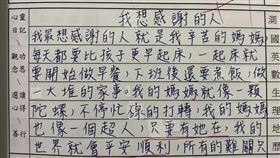 我想感謝的人
我最想感謝的人就是我辛苦的媽媽
每天都要比孩子更早起床,一起床就
要開始做早餐,下班後還要煮飯,做
一大堆的家事。我的媽媽就像一顆
陀螺,不停忙碌的打轉,我的媽媽
也像一個超人,只要有她在,我的
世界就會平安順利,所有的難關只
心靈日記
功過
觀念
思
選讀心得
善行
測
國
英
數
生